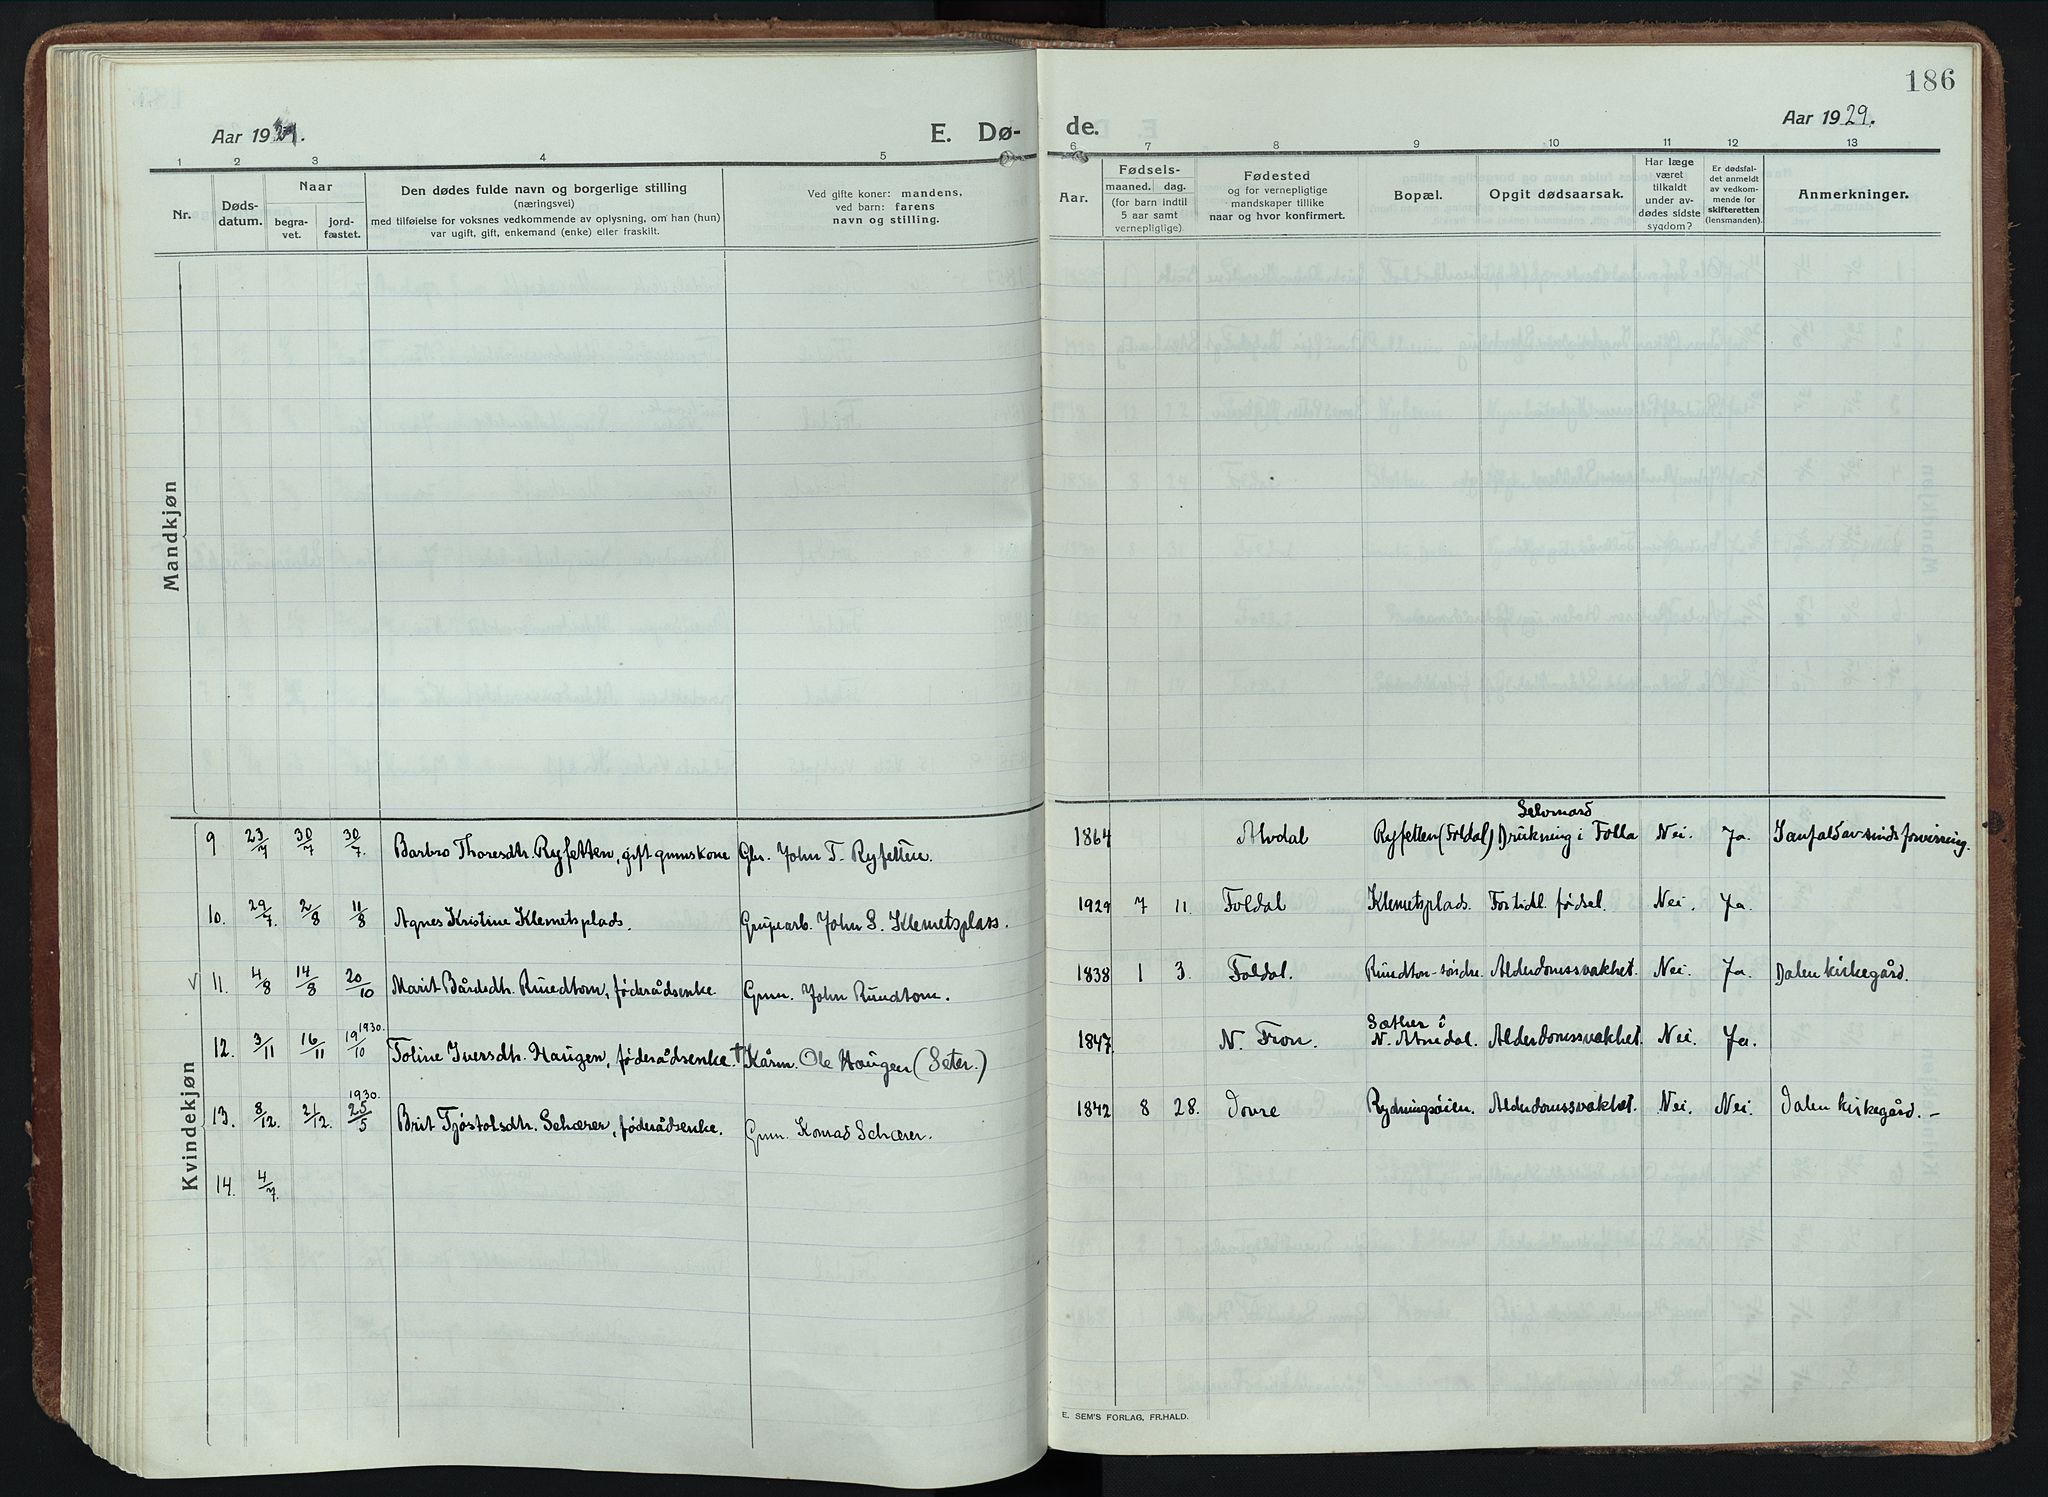 186
Aar 1929.
E. Dø-
de.
Aar 1929.
1 2 3 4 5
6 7 8 9 10 11 12 13
Nr.
Døds-
datum.
Naar
begra-
vet.
jord-
fæstet.
Den dødes fulde navn og borgerlige stilling
(næringsvei)
med tilføielse for voksnes vedkommende av oplysning, om han (hun)
var ugift, gift, enkemand (enke) eller fraskilt.
Ved gifte koner: mandens,
ved barn: farens
navn og stilling.
Aar.
Fødsels-
maaned. dag.
(for barn indtil
5 aar samt
vernepligtige).
Fødested
og for vernepligtige
mandskaper tillike
naar og hvor konfirmert.
Bopæl.
Opgit dødsaarsak.
Har læge
været
tilkaldt
under av-
dødes sidste
sygdom?
Er dødsfal-
det anmeldt
av vedkom-
mende for
skifteretten
(lensmanden).
Anmerkninger.
Mandkjøn
Kvindekjøn
Selvmord
9 23/7 30/7 30/7. Barbro Thoresdtr. Ryfetten, gift gmnskone Gbr. John T. Ryfetten. 1864 Alvdal Ryfetten (Foldal) Drukning i Folla Nei. Ja. I anfald av sinds forvirring.
10. 29/7. 2/8 11/8 Agnes Kristine Klemetsplads. Grupearb. John S. Klemetsplass. 1929 7 11. Foldal Klemetsplads. For tidl. fødsel. Nei. Ja.
√ 11. 4/8 14/8 20/10 Marit Bårdsdtr. Ruudtom, føderådsenke. Gmn. John Ruudtom. 1838 1 3. Foldal. Ruudtom søndre. Alderdomssvakhet. Nei. Ja. Dalen kirkegård.
1930.
Sæther i
12. 3/11 16/11 19/10 Toline Iversdtr. Haugen, føderådsenke. † Kårm. Ole Haugen (Seter.) 1847. N. Fron. N. Atnedal. Alderdomssvakhet. Nei. Ja.
1930.
13. 8/12. 21/12. 25/5 Brit Tjøstolsdtr. Schærer, føderådsenke. Gmn. Konrad Schærer. 1842 8 28. Dovre Rydningsøien. Alderdomssvakhet. Nei. Nei. Dalen kirkegård. –
14. 4/7
E. SEM'S FORLAG, FR.HALD.